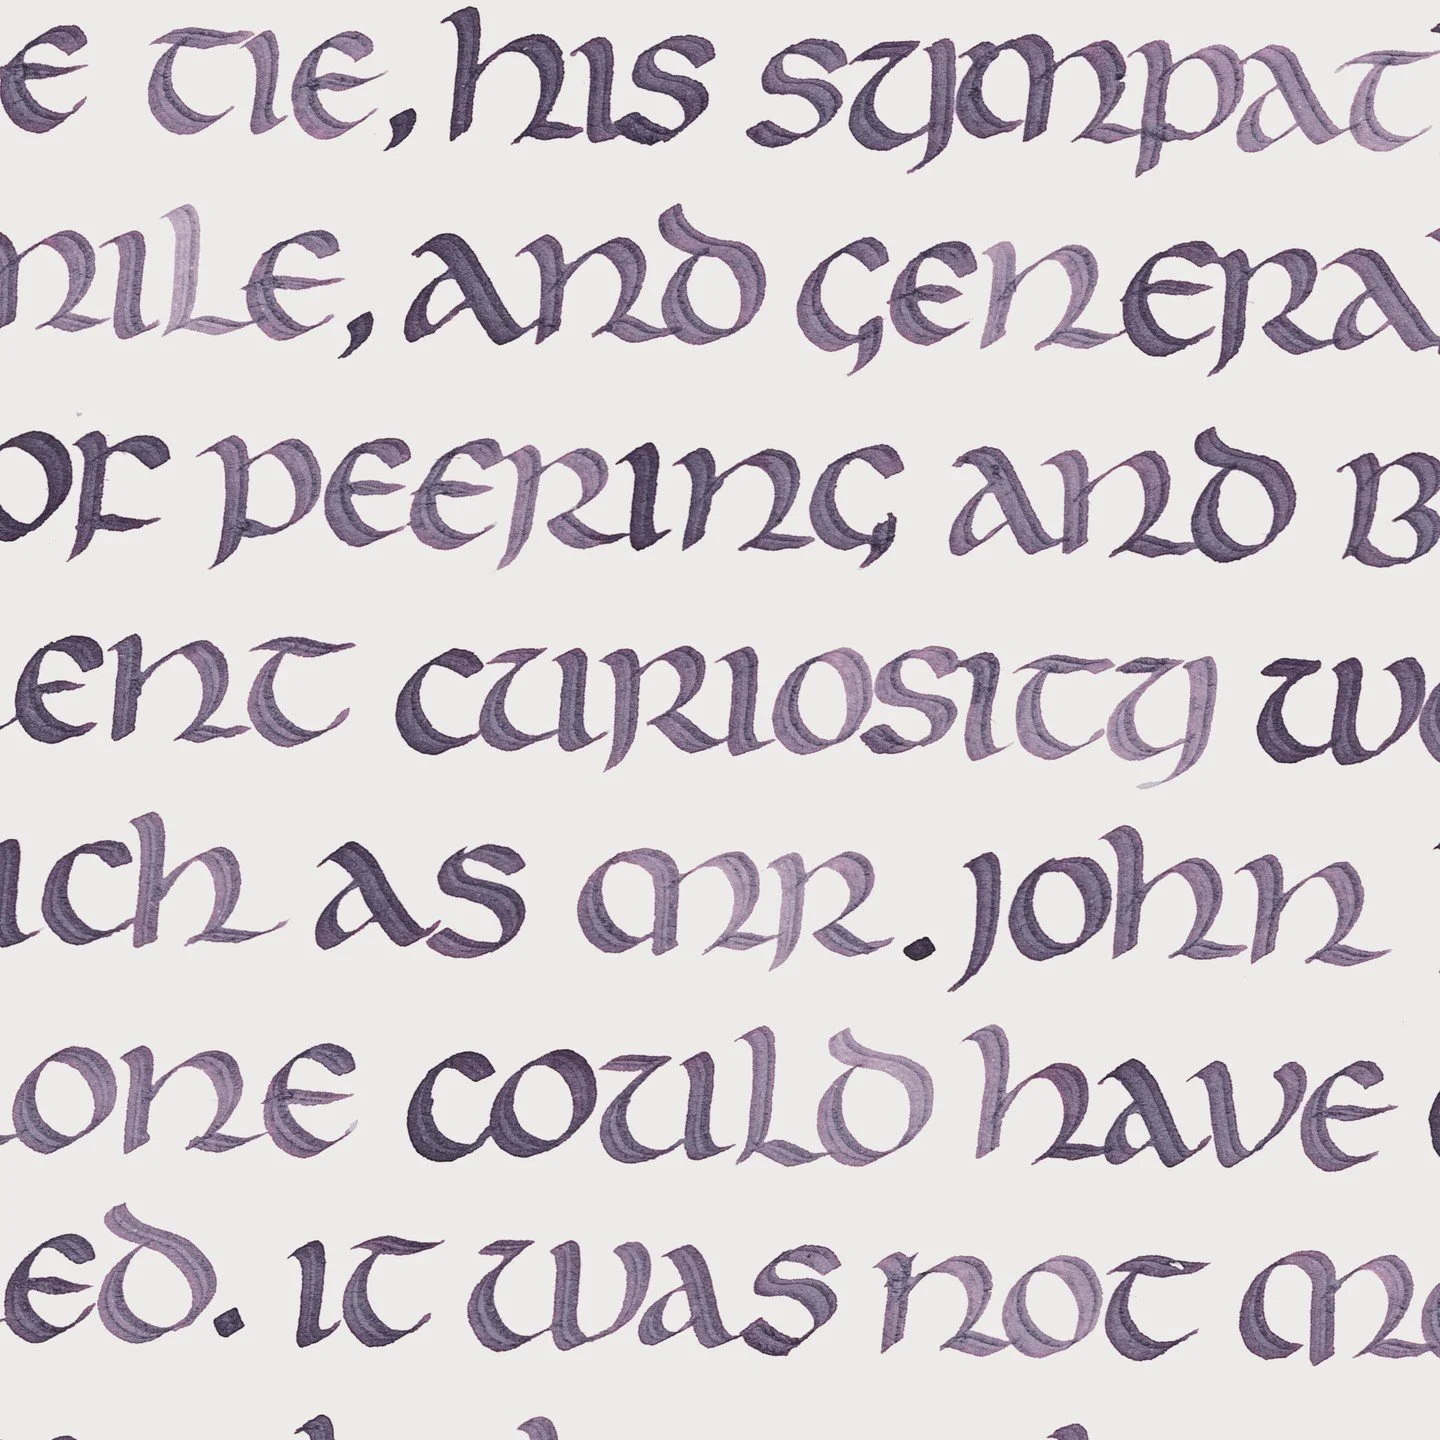 e tie, his sympat
mile, and genera
of peering and b
ent curiosity we
ich as mr. john
one could have
ed. it was not me